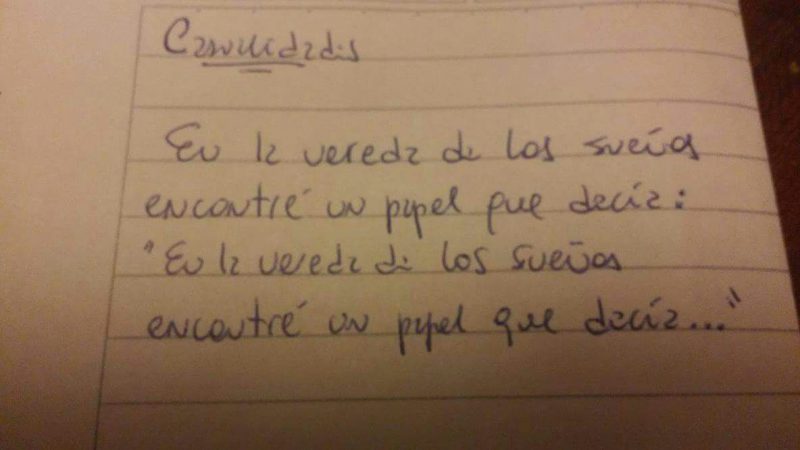 Casualidades
En la vereda de los sueños
encontré un papel que decía:
"En la vereda de los sueños
encontré un papel que decía..."